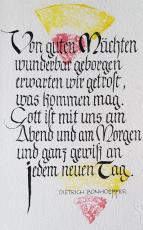 Von guten Mächten
wunderbar geborgen
erwarten wir getrost,
was kommen mag.
Gott ist mit uns am
Abend und am Morgen
und ganz gewiß an
jedem neuen Tag.
DIETRICH BONHOEFFER